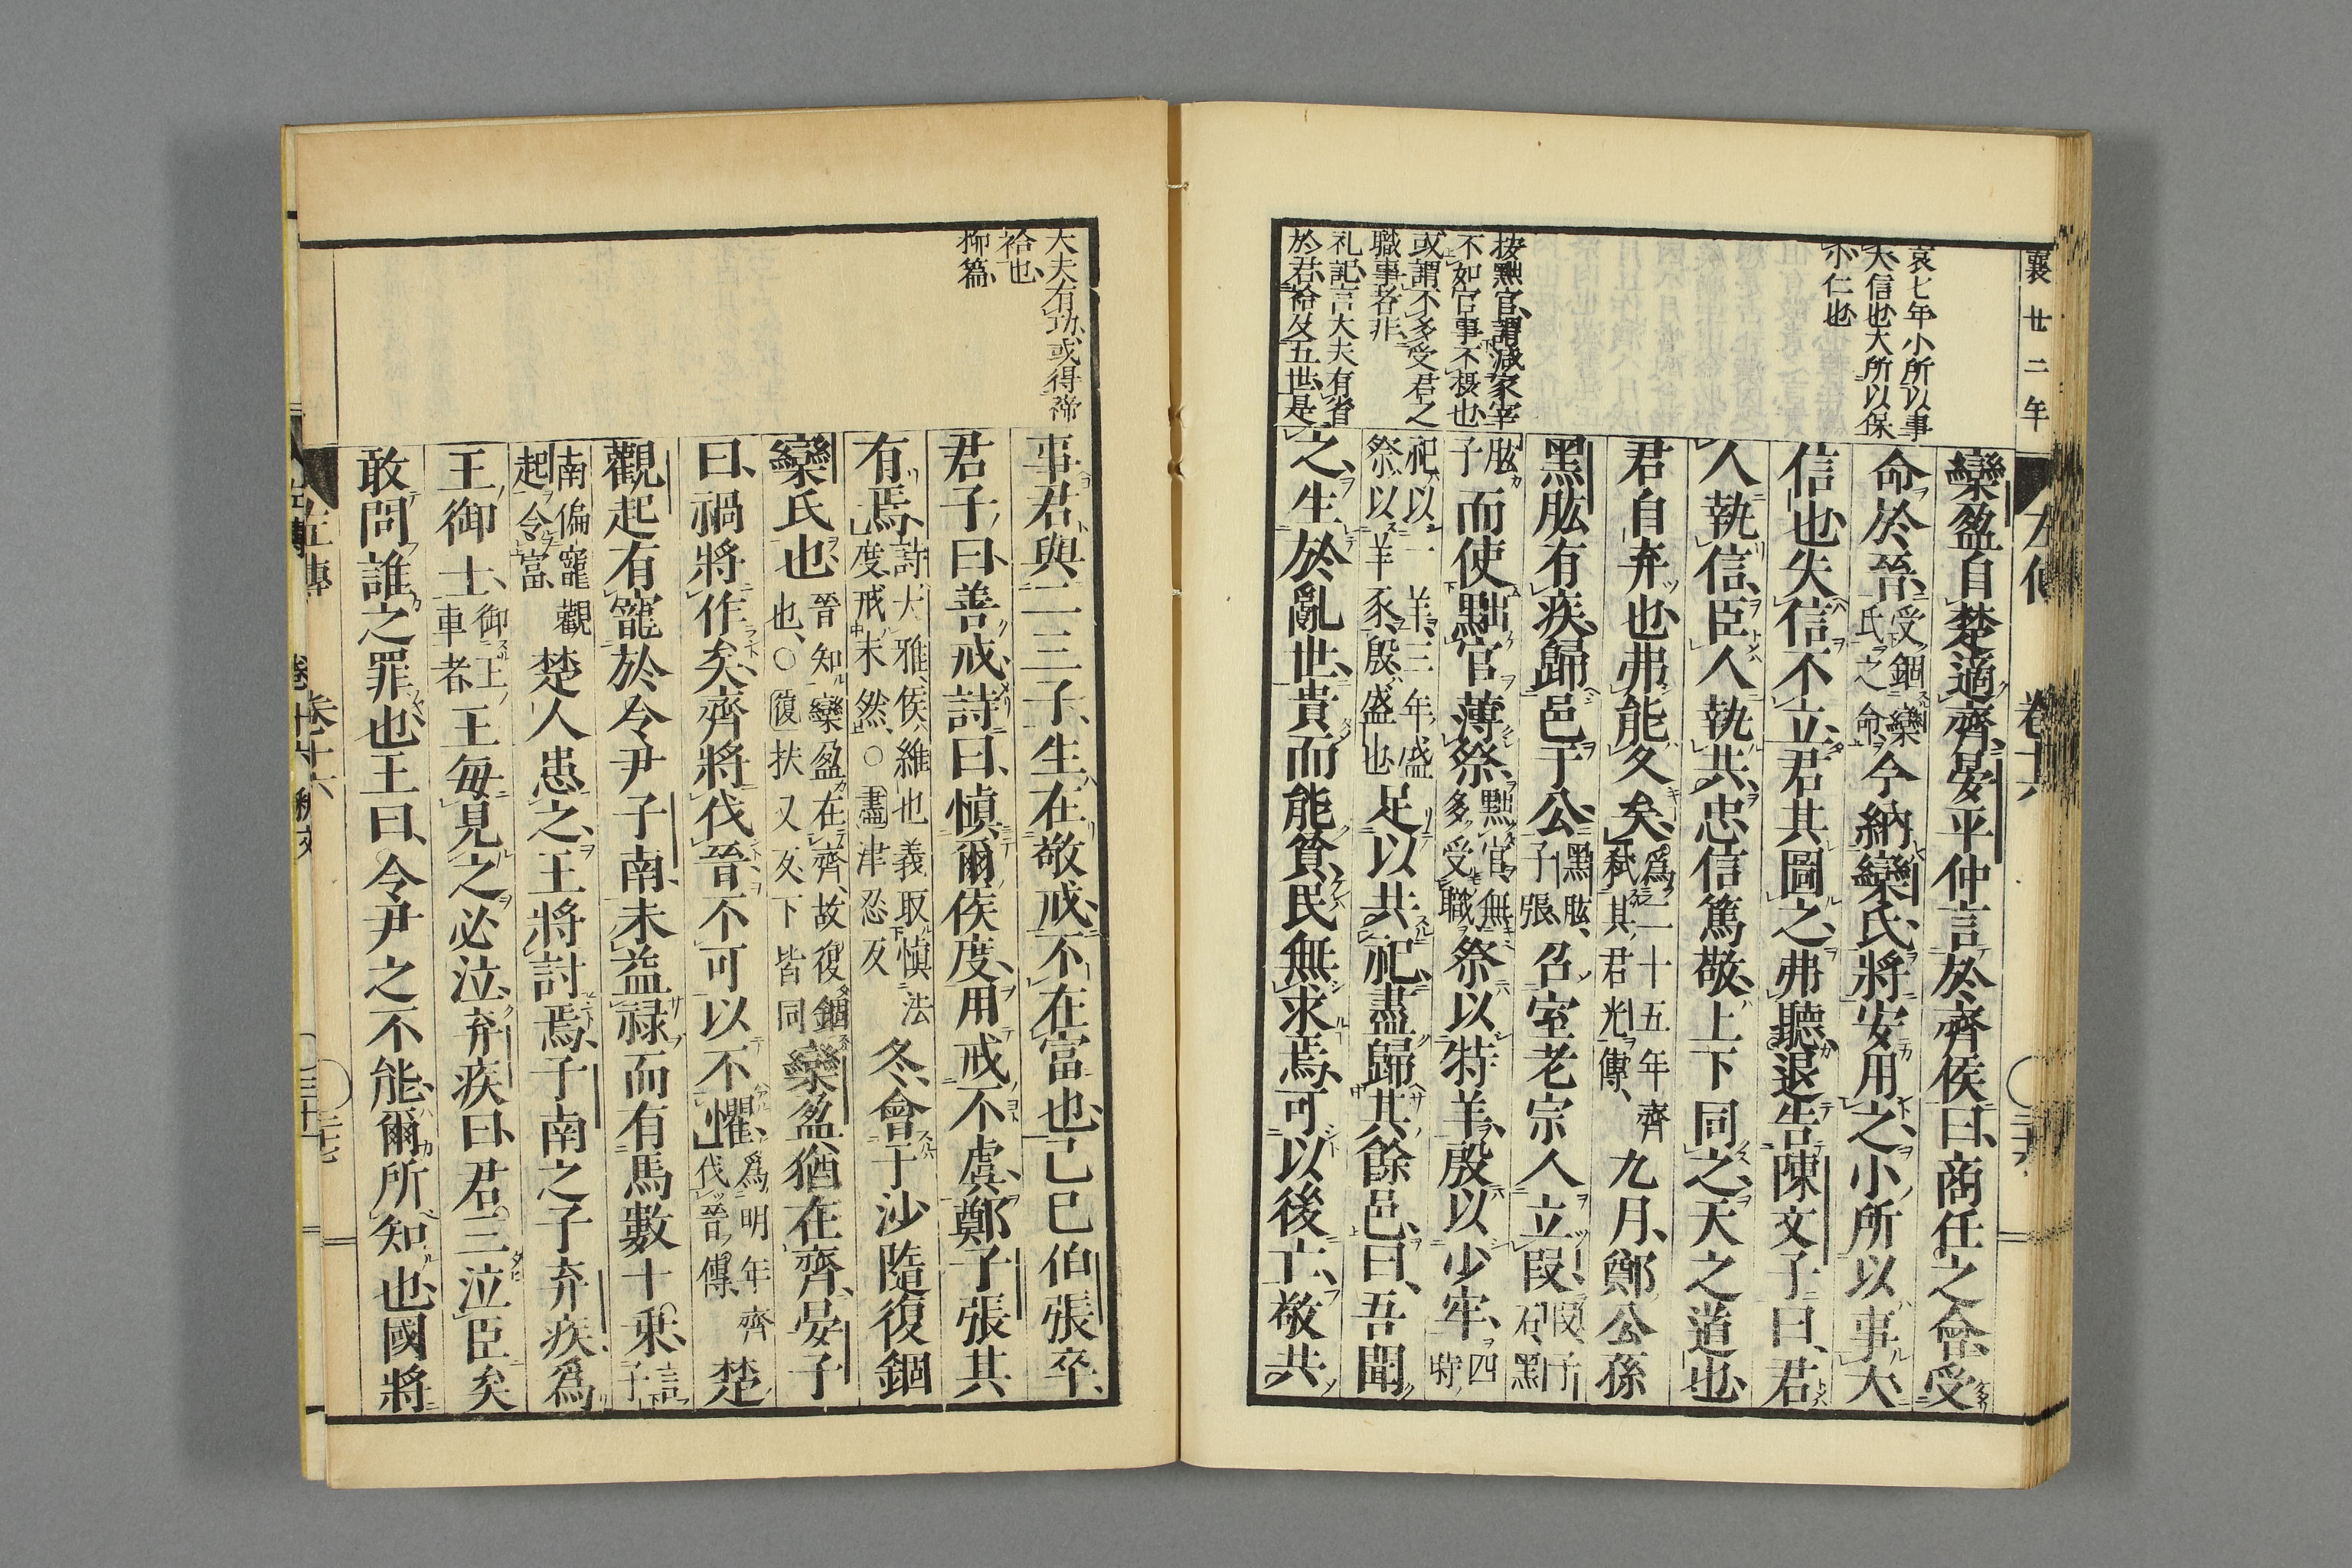 襄廿二年
左傳 卷十六
哀七年小所以事
大信也大所以保
小仁也
按黜官謂減家宰
不如官事不摂也
或謂不多受君之
職事者非
礼記言大夫有省
於君祫及五世是
欒盈自楚適齊晏平仲言於齊侯曰商任之會受
命於晉受錮欒氏之命今納欒氏將安用之小所以事大
信也失信不立君其圖之弗聽退告陳文子曰君
人執信臣人執共忠信篤敬上下同之天之道也
君自弃也弗能久矣爲二十五年齊弒其君光傳九月鄭公孫
黑肱有疾歸邑于公黑肱子張召室老宗人立段段子石黑
肱子而使黜官薄祭黜官無多受職祭以特羊殷以少牢四時
祀以一羊三年盛祭以羊豕殷盛也足以共祀盡歸其餘邑曰吾聞
之生於亂世貴而能貧民無求焉可以後亡敬共
大夫有功或得禘
祫也
抑篇
事君與二三子生在敬戒不在富也己巳伯張卒
君子曰善戒詩曰愼爾侯度用戒不虞鄭子張其
有焉詩大雅侯維也義取愼法度戒未然○盡津忍反冬會于沙隨復錮
欒氏也晉知欒盈在齊故復錮也○復扶又反下皆同欒盈猶在齊晏子
曰禍將作矣齊將伐晉不可以不懼爲明年齊伐晉傳楚
觀起有寵於令尹子南未益祿而有馬數十乘言子
南偏寵觀起令富楚人患之王將討焉子南之子弃疾爲
王御士御王車者王毎見之必泣弃疾曰君三泣臣矣
敢問誰之罪也王曰令尹之不能爾所知也國將
左傳 卷十六